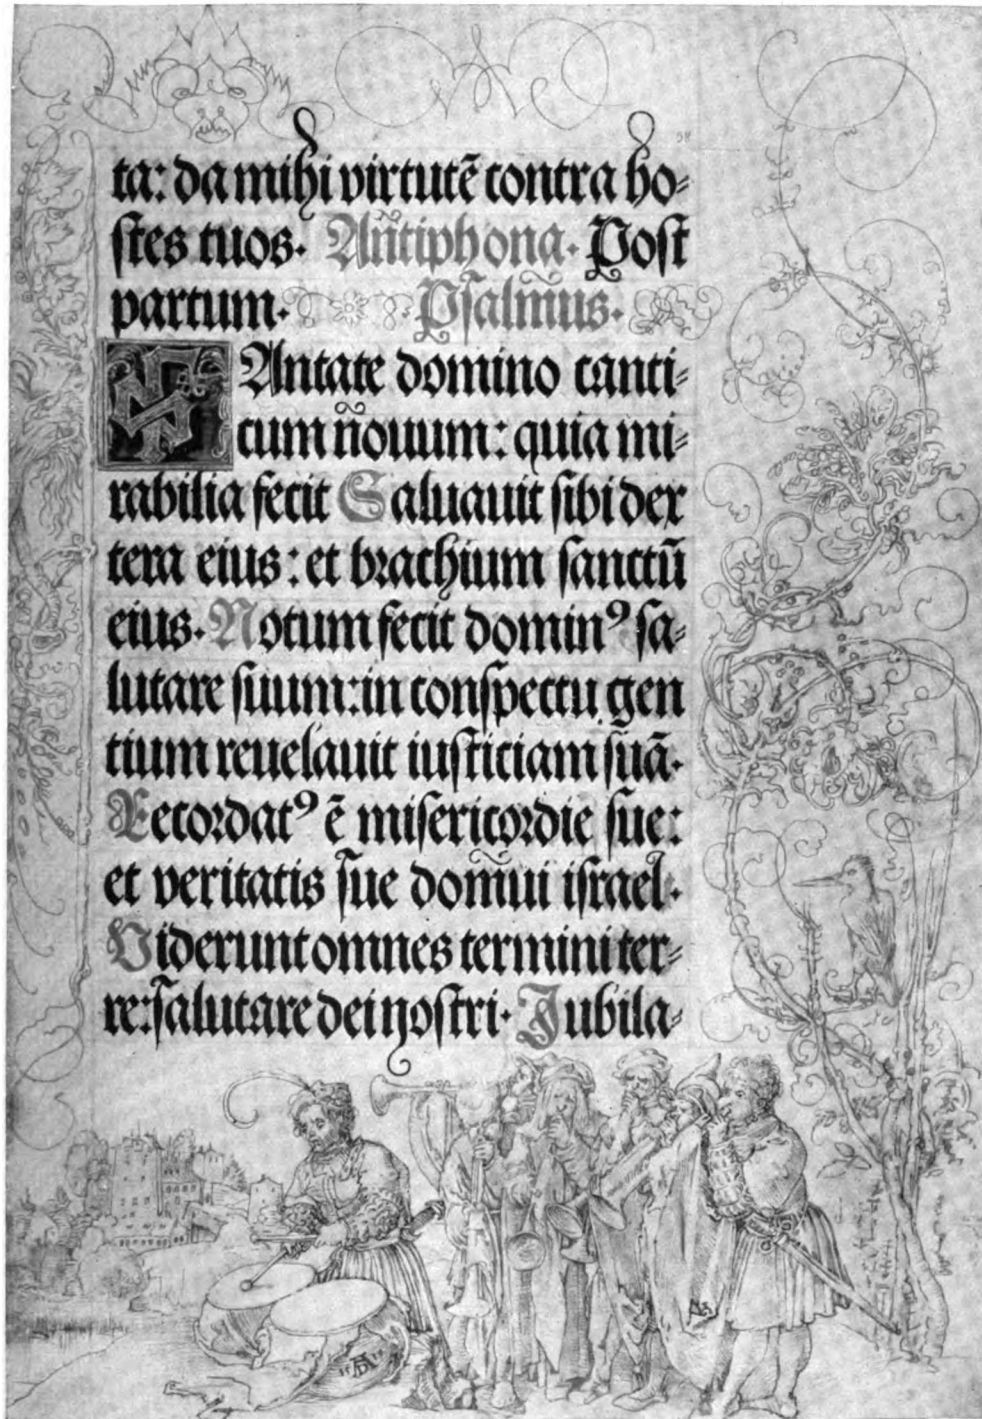 ta: da mihi virtutē contra ho⸗
ſtes tuos. Antiphona. Poſt
partum. Pſalmus.
CAntate domino canti⸗
cum nouum: quia mi⸗
rabilia fecit Saluauit ſibi dex
tera eius: et brachium ſanctū
eius. Notum fecit dominꝰ ſa⸗
lutare ſuum: in conſpectu gen
tium reuelauit iuſticiam ſuā.
Recordatꝰ ē miſericordie ſue:
et veritatis ſue domui iſrael.
Viderunt omnes termini ter⸗
re: ſalutare dei noſtri. Jubila⸗
AD